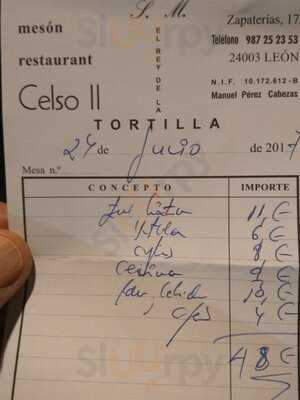 S. M.
mesón
restaurant
Celso II
EL REY DE LA
TORTILLA
Zapaterías, 17
Teléfono 987 25 23 53
24003 LEÓN
N.I.F. 10.172.612-B
Manuel Pérez Cabezas
24 de Julio de 2017
Mesa n.º
CONCEPTO IMPORTE
11,€
6,€
8,€
Cecina 9,€
10,€
4,€
48€
Sluurpy